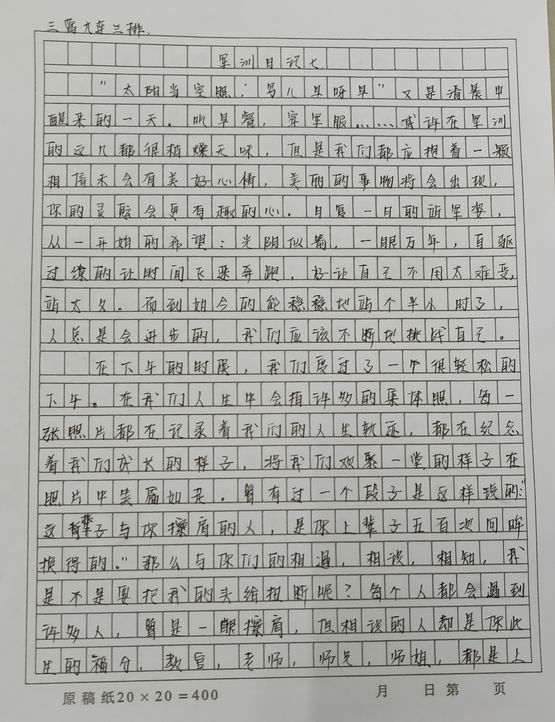 三营九连三排.
军训日记七
"太阳当空照,鸟儿早呀早"又是清晨中
醒来的一天。听早餐,穿军服……或许在军训
的这几都很枯燥无味,但是我们都应抱着一颗
相信未会有美好心情,美丽的事物将会出现,
你的灵会更有趣的心。日复一日的站军姿,
从一开始的希望:光阴似箭,一眼万年,自驱
过缭的让时间飞乘奔跑,好让自己不用太难受,
站太久。而到如今的能稳稳地站个半小时了,
人总是会进步的,我们应该不断地挑战自己。
在下午的时候,我们度过了一个很轻松的
下午。在我们人生中会拍许多的集体照,每一
张照片都在记录着我们的人生轨迹,都在纪念
着我们成长的样子,将我们欢聚一堂的样子在
照片中笑靥如花。曾有过一个段子是这样说的:"
这辈子与你擦肩的人,是你上辈子五百次回眸
换得的。"那么与你们的相遇,相识,相知,我
是不是要把我的头给扭断呢?每个人都会遇到
许多人,曾是一眼擦肩,但相识的人却是你此
生的福分,教官,老师,师兄,师姐,都是上
原稿纸20×20=400 月 日第 页